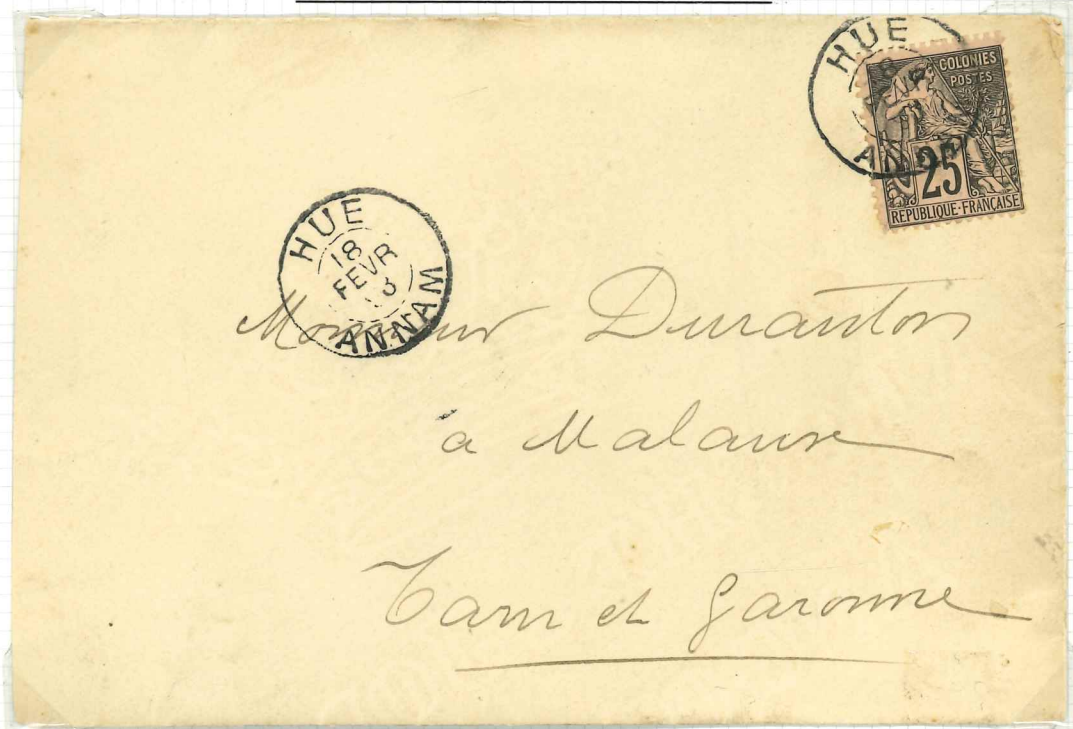 HUE
COLONIES
POSTES
25
REPUBLIQUE·FRANÇAISE
HUE
18
FEVR
ANNAM
Monsieur Duranton
à Malause
Tarn et Garonne